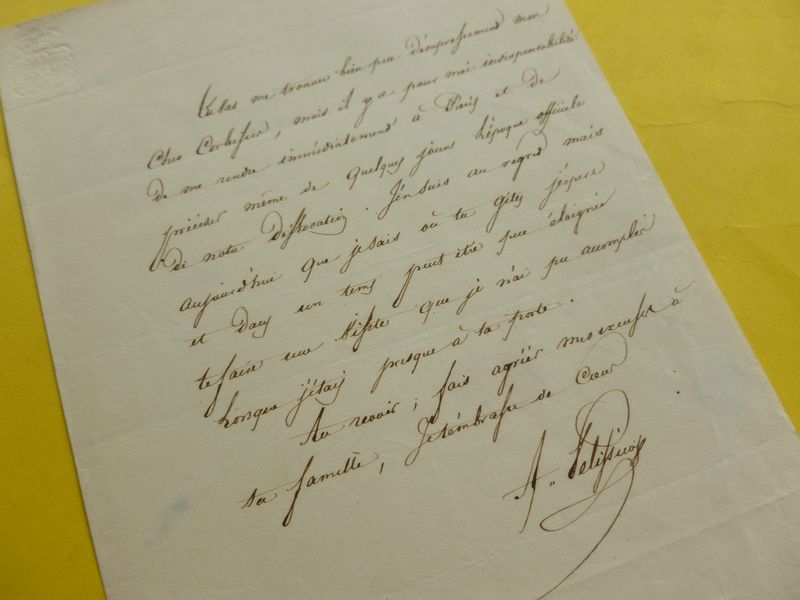 me trouver bien peu d'empressement mon
Cher Corbisier, mais il y a pour moi indispensabilité
de me rendre immédiatement à Paris et de
précéder même de quelques jours l'époque officielle
de notre dislocation. J'en suis au regret mais
aujourd'hui que je sais où tu gites j'espère
et dans un tems peut être peu éloigné
te faire une visite que je n'ai pu accomplir
lorsque j'étais presque à ta porte.
Au revoir, fais agréer mes excuses à
ta famille, Je t'embrasse de Cœur
A.